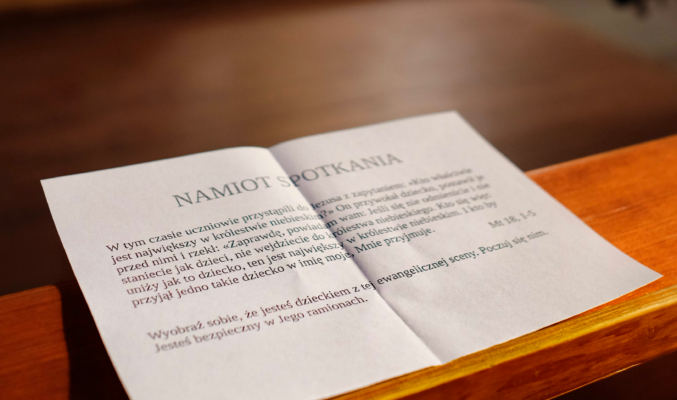 NAMIOT SPOTKANIA
W tym czasie uczniowie przystąpili do Jezusa z zapytaniem: «Kto właściwie
jest największy w królestwie niebieskim?» On przywołał dziecko, postawił je
przed nimi i rzekł: «Zaprawdę, powiadam wam: Jeśli się nie odmienicie i nie
staniecie jak dzieci, nie wejdziecie do królestwa niebieskiego. Kto się więc
uniży jak to dziecko, ten jest największy w królestwie niebieskim. I kto by
przyjął jedno takie dziecko w imię moje, Mnie przyjmuje.
Mt 18, 1-5
Wyobraź sobie, że jesteś dzieckiem z tej ewangelicznej sceny. Poczuj się nim.
Jesteś bezpieczny w Jego ramionach.